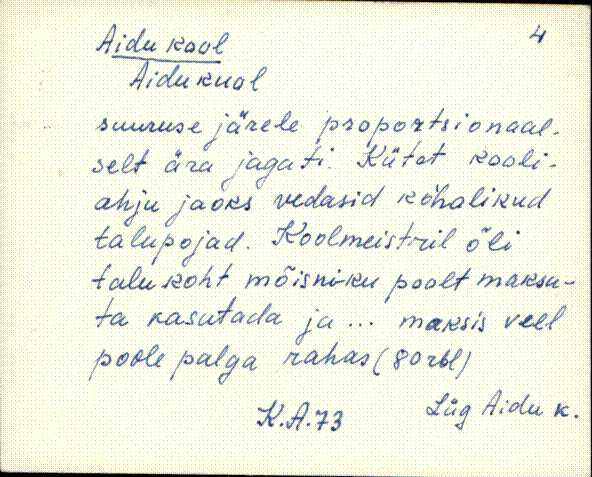 Aidu kool 4
Aidu kuol
suuruse järele proportsionaal-
selt ära jagati. Kütet kooli-
ahju jaoks vedasid kohalikud
talupojad. Koolmeistril oli
talu koht mõisniku poolt maksu-
ta kasutada ja ... maksis veel
poole palga rahas (80 rbl)
K.A.73 Lüg Aidu k.